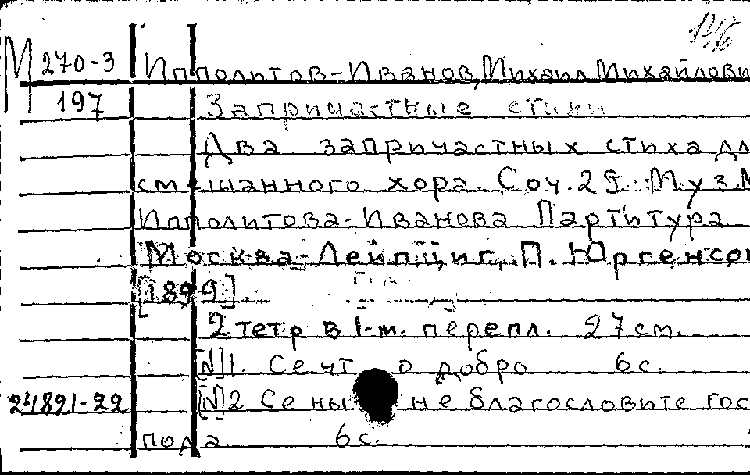 146
М 270-3 Ипполитов-Иванов, Михаил Михайлови
197 Запричастные стихи
Два запричастных стиха дл
смешанного хора. Соч. 29. Муз. М
Ипполитова-Иванова Партитура
Москва-Лейпциг, П. Юргенсо
[1899].
2 тетр в 1-м. перепл. 27 см.
[N]1. Се чт о добро 6 с.
24891-29 [N]2 Се ны не благословите гос
пода 6 с.